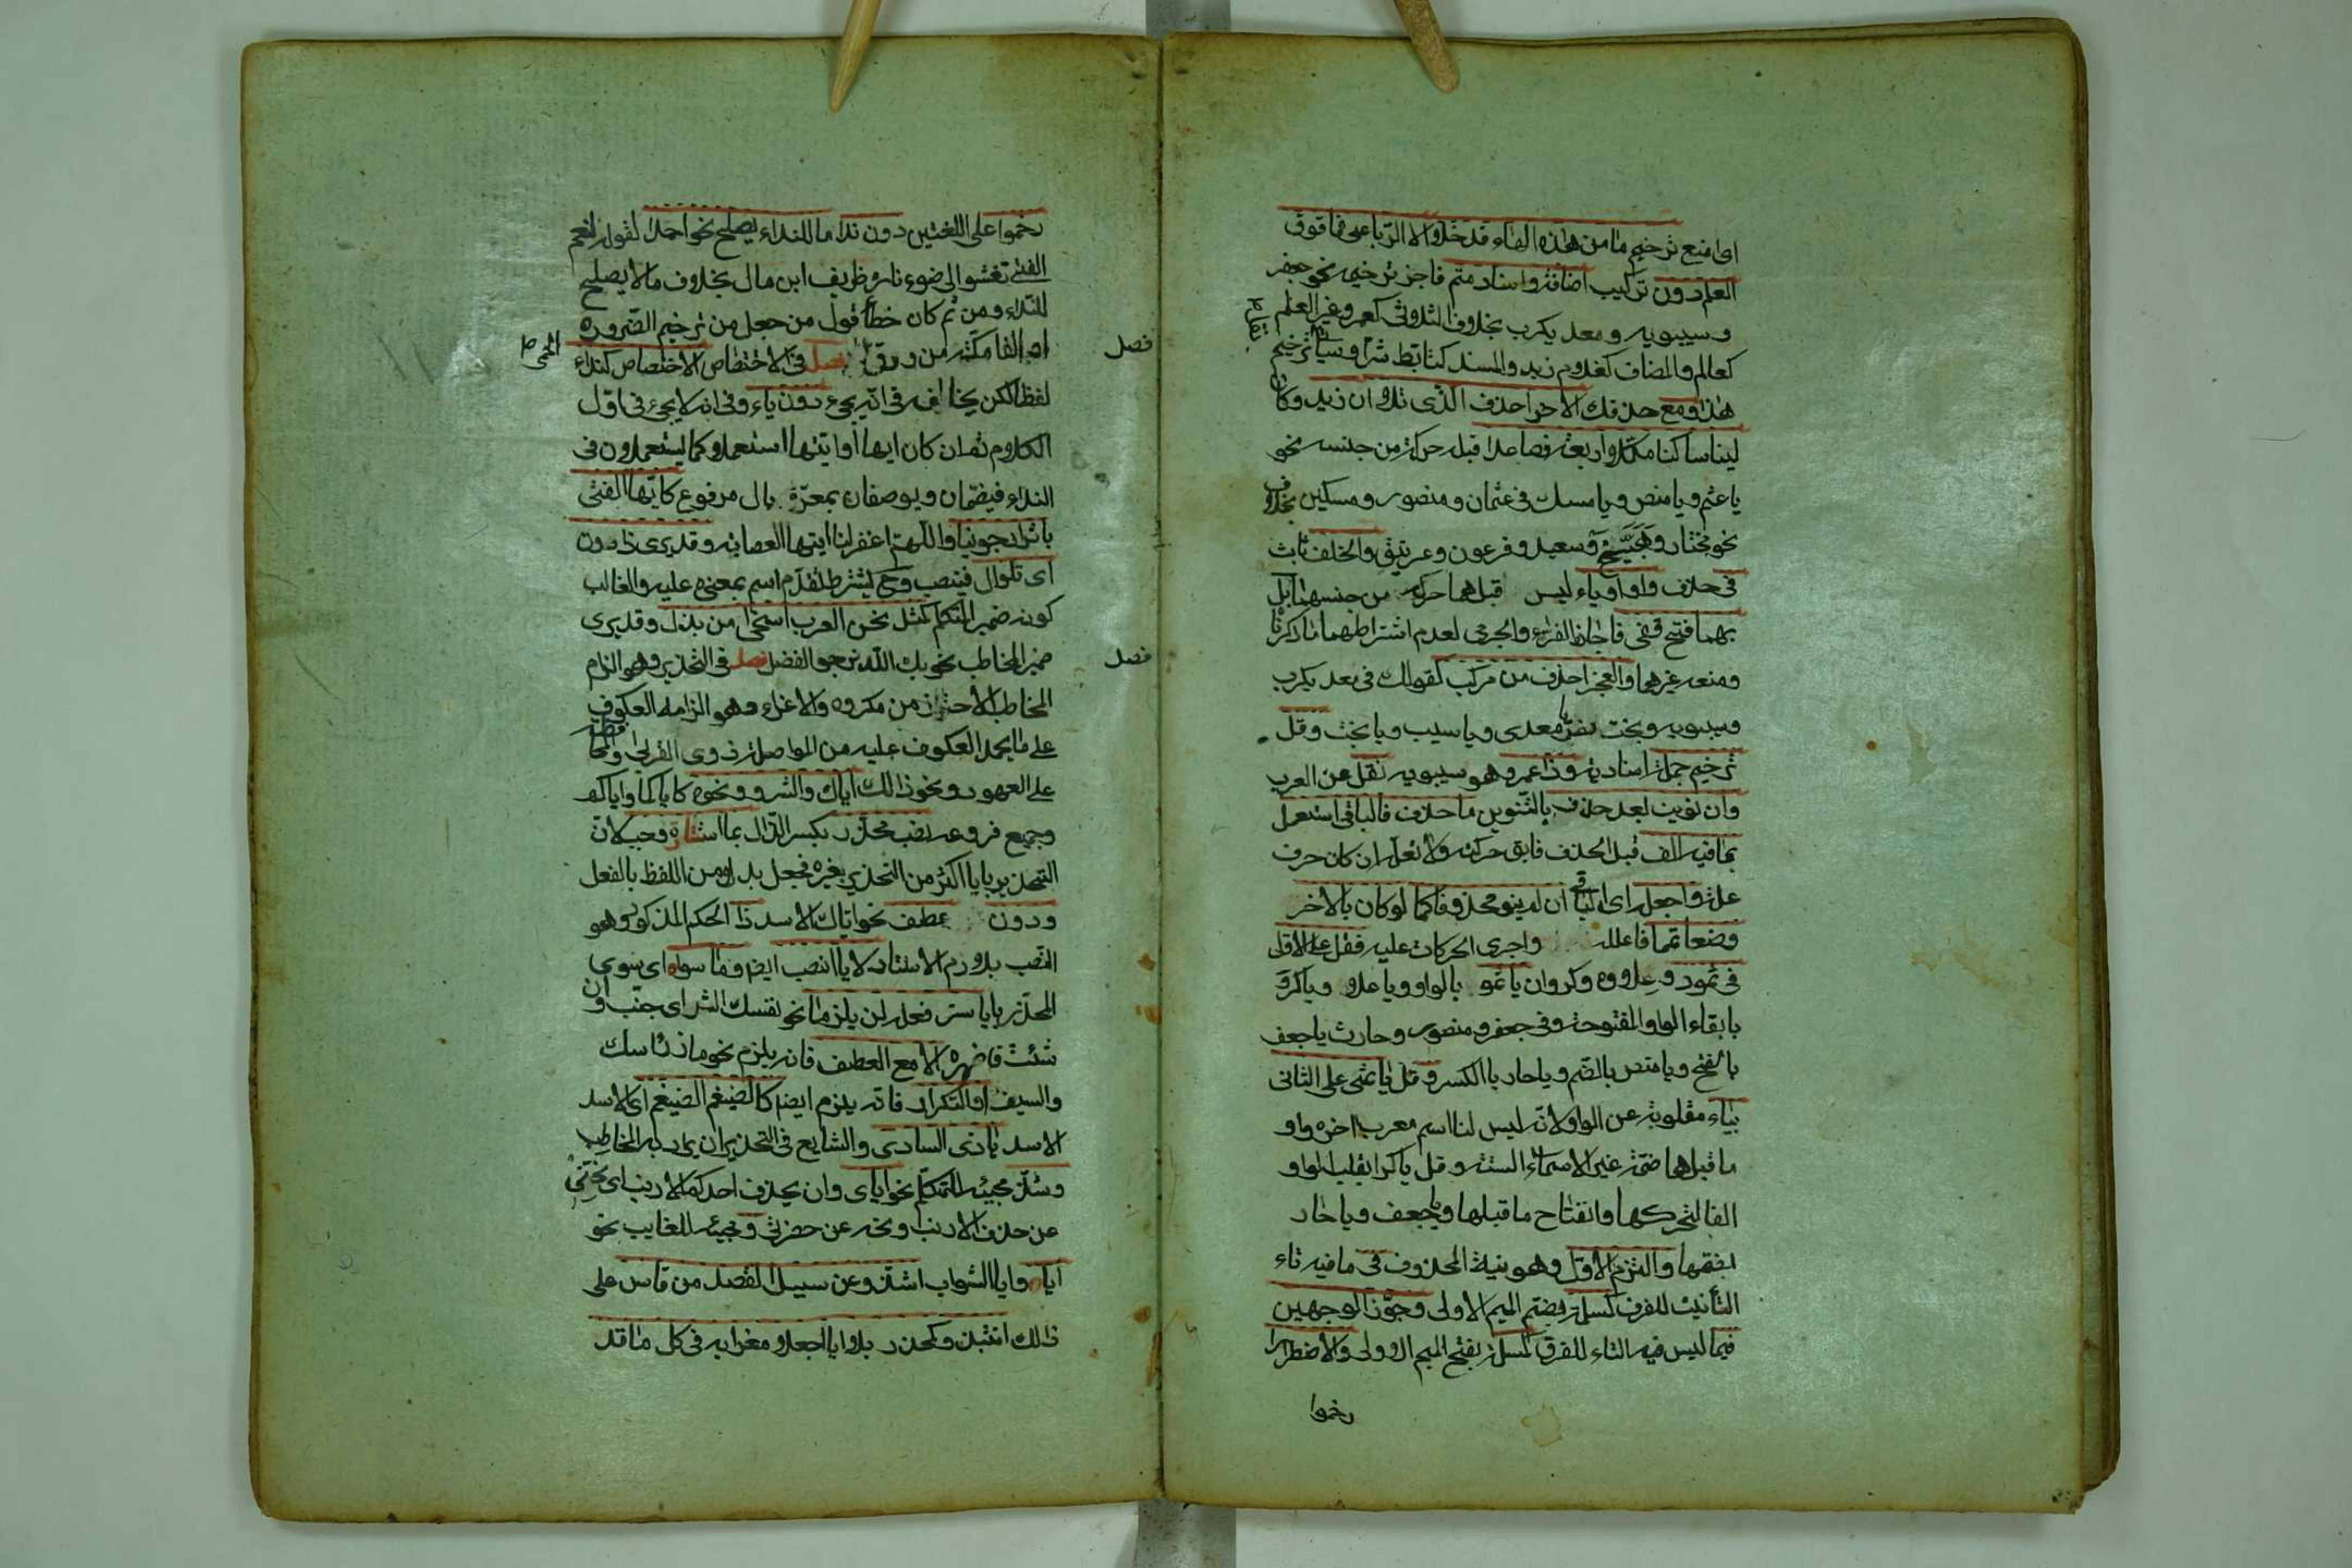 اى امنع ترخيم ما من هذه الهاء قد خلا الا الرباعى فما فوق
العلم دون تركيب اضافة واسناد متم فاجز ترخيمه نحو جعفر
وسيبويه ومعد يكرب بخلاف الثلاثى كعمر وغير العلم
كعالم والمضاف كغلام زيد والمسند كتابط شرا وسياتى ترخيم
هذا ومع حذفك الاخر احذف الذى تلا ان زيد وكان
لينا ساكنا مكملا اربعة فصاعدا قبله حركة من جنسه نحو
يا عثم ويا منص ويا مسك فى عثمان ومنصور ومسكين بخلاف
نحو مختار وهبيخ وسعيد وفرعون وغرنيق والخلف ثابت
فى حذف واو وياء ليس قبلهما حركة من جنسهما بل
بهما فتح قفى فاجاز الفراء والجرمى لعدم اشتراطهما ما ذكرنا
ومنعه غيرهما والعجز احذف من مركب كقولك فى معد يكرب
وسيبويه وبخت نصر يا معدى ويا سيب ويا بخت وقل
ترخيم جملة اسنادية وذا عمرو وهو سيبويه نقل عن العرب
وان نويت بعد حذف بالتنوين ما حذف فالباقى استعمل
بما فيه الف قبل الحذف فابق حركته ولا تعله ان كان حرف
علة واجعله اى الباقى ان لم ينو محذوفا كما لو كان بالاخر
وضعا تمما فاعلله واجرى الحركات عليه فقل على الاول
فى ثمود وعلاوه وكروان يا ثمو بالواو ويا علاو ويا كرو
بابقاء الواو المفتوحة وفى جعفر ومنصور وحارث يا جعف
بالفتح ويا منص بالضم ويا حار بالكسر وقل يا ثمى على الثانى
بياء مقلوبة عن الواو لانه ليس لنا اسم معرب اخره واو
ما قبلها ضمة غير الاسماء الستة وقل يا كرا بقلب الواو
الفا لتحركها وانفتاح ما قبلها ويا جعف ويا حار
بضمها والتزم الاول وهو نية المحذوف فى ما فيه تاء
التأنيث للفرق كمسلمة بضم الميم الاولى وجوز الوجهين
فيما ليس فيه التاء للفرق كمسلمة بفتح الميم الاولى والاضطرار
رخموا
رخموا على اللغتين دون ندا ما للنداء يصلح نحو احمد لقوله لنعم
الفتى تعشوا الى ضوء ناره طريف ابن مال بخلاف ما لا يصلح
للنداء ومن ثم كان خطأ قول من جعل من ترخيم الضرورة
او الفا مكة من ورق الحمى فصل فى الاختصاص الاختصاص كنداء
فصل
لفظا لكن يخالفه فى انه يجىء دون ياء وفى انه لا يجىء فى اول
الكلام ثم ان كان ايها او ايتها استعملوا كما يستعملون فى
النداء فيضمان ويوصفان بمعرفة بال مرفوع كايها الفتى
باثر ارجونيا واللهم اغفر لنا ايتها العصابة وقد يرى ذا دون
اى تلو ال فينصب وح يشترط تقدم اسم بمعناه عليه والغالب
كونه ضمير المتكلم كمثل نحن العرب اسخى من بذل وقد يرى
ضمير المخاطب نحو بك الله نرجو الفضل فصل فى التحذير وهو الزام
فصل
المخاطب الاحتراز من مكروه والاغراء وهو الزامه العكوف
على ما يحمد العكوف عليه من مواصلة ذوى القربى والمحافظة
على العهود ونحو ذلك اياك والشر ونحوه كاياكما واياكم
وجميع فروعه نصب محذر بكسر الذال بما استتاره وجب لان
التحذير بايا اكثر من التحذير بغيره فجعل بدلا من اللفظ بالفعل
ودون عطف نحو اياك الاسد ذا الحكم المذكور وهو
النصب بلازم الاستتار لايا انصب ايضا وما سواه اى سوى
المحذر بايا ستر فعله لن يلزما نحو نفسك الشر اى جنب وان
شئت فاظهره الا مع العطف فانه يلزم نحو ماز راسك
والسيف او التكرار فانه يلزم ايضا كالضيغم الضيغم اى الاسد
الاسد يا ذى السارى والشايع فى التحذير ان يراد به المخاطب
وشذ مجيئه للمتكلم نحو اياى وان يحذف احدكم الارنب اى نحنى
عن حذف الارنب ونحه عن حضرتى ومجيئه للغايب نحو
اياه وايا الشواب اشذ وعن سبيل القصد من قاس على
ذلك انتبذ وكمحذر بلا ايا اجعلا مغرا به فى كل ما قد